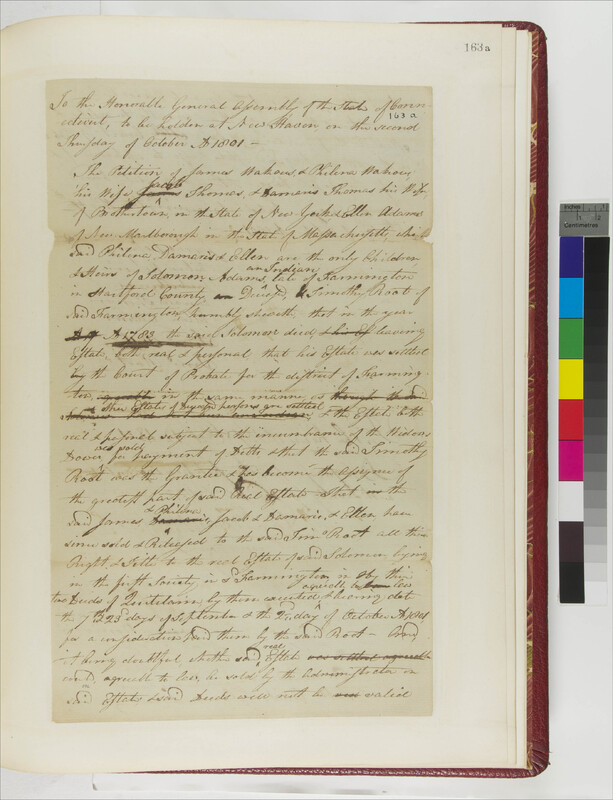 163a
To the Honorable General Assembly of the State of Conn-
163a
ecticut, to be holden at New Haven on the second
Thursday of October AD 1801 -
The Petition of James Wakous & Philena Wakous
his Wife Jacob Thomas, & Damaris Thomas his Wife
of Brothertown, in the State of New York & Ellen Adams
of New Marlborough in the State of Massachusetts, which
said Philena, Damaris & Ellen are the only Children
& Heirs of Solomon Adams an Indian late of Farmington
in Hartford County Deceasd, & Timothy Root of
said Farmington, humbly sheweth that in the year
AD 1783 the said Solomon died leaving
Estate, both real & personal that his Estate was settled
by the Court of Probate for the district of Farming-
ton, in the same manner as
other Estates of Deceased persons are settled & the Estate both
real & personal subject to the incumbrance of the Widows
Dower was sold for payment of Debts & that the said Timothy
Root was the Grantee & has become the assignee of
the greatest part of said Real Estate that the
said James & Philena, Jacob & Damaris, & Ellen have
since sold & Released to the said Timo Root all their
Right & Title to the real Estate of said Solomon lying
in the first Society in sd Farmington by their
two Deeds of Quitclaim by them executed & bearing date
the 7th & 23d days of September & the 2d day of October AD 1801
for a consideration paid them by the said Root - And
it being doubtful whether said real Estate was settled agreable
could, agreable to law, be sold by the Administrator on
said Estate & said Deeds will not be valid